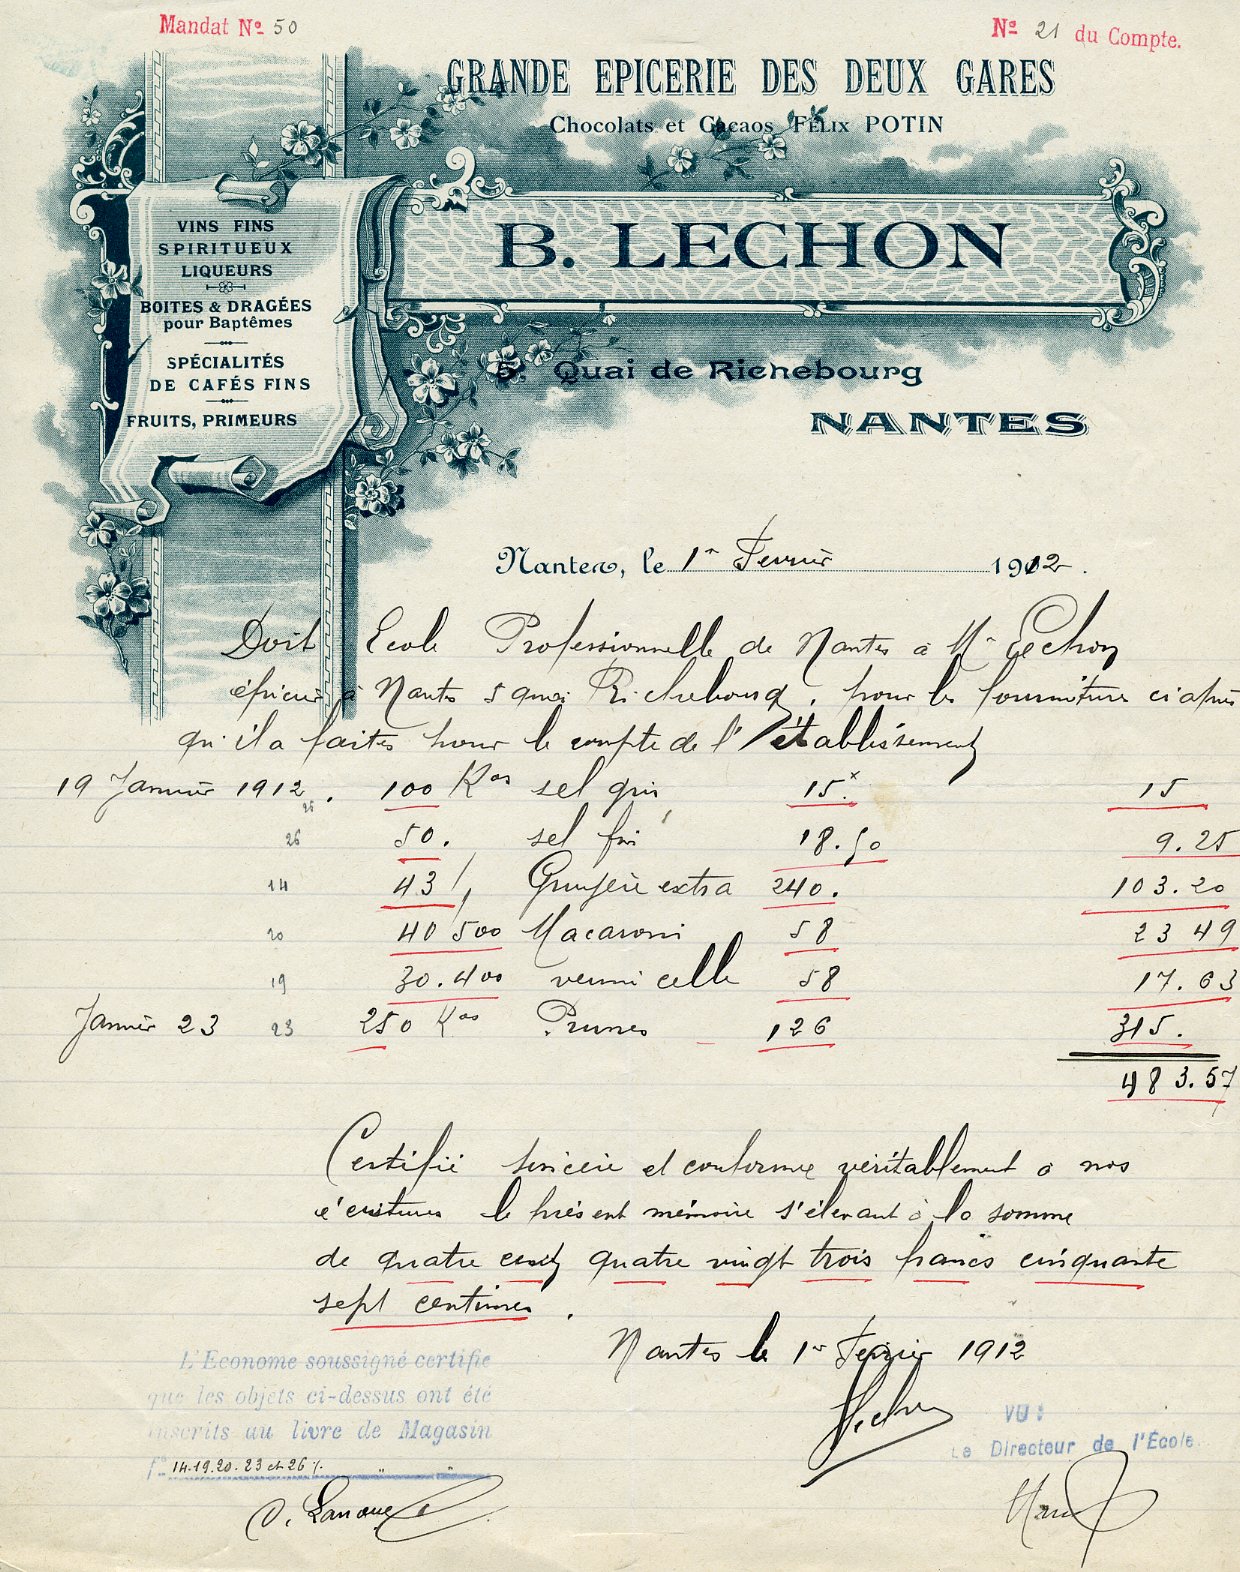 Mandat Nº 50
Nº 21 du Compte.
GRANDE EPICERIE DES DEUX GARES
Chocolats et Cacaos FÉLIX POTIN
B. LECHON
5, Quai de Richebourg
NANTES
VINS FINS
SPIRITUEUX
LIQUEURS
BOITES & DRAGÉES
pour Baptêmes
SPÉCIALITÉS
DE CAFÉS FINS
FRUITS, PRIMEURS
Nantes, le 1er Fevrier 1912.
Doit Ecole Professionnelle de Nantes à Mr Lechon
épicier à Nantes 5 quai Richebourg, pour les fournitures ci après
qu'il a faites pour le compte de l'établissement
19 Janvier 1912. 100 Kos sel gris 15. 15
26 50. sel fin 18.50 9.25
14 43 Gruyère extra 240. 103.20
20 40 500 Macaroni 58 23 49
19 30.400 vermicelle 58 17.63
Janvier 23 23 250 Kos Prunes 126 315.
483.57
Certifié sincère et conforme véritablement à nos
écritures le présent mémoire s'élevant à la somme
de quatre cent quatre vingt trois francs cinquante
sept centimes.
Nantes le 1er Fevrier 1912
Lechon
L'Econome soussigné certifie
que les objets ci-dessus ont été
inscrits au livre de Magasin
fº 14.19.20.23 et 26
VU :
Le Directeur de l'École